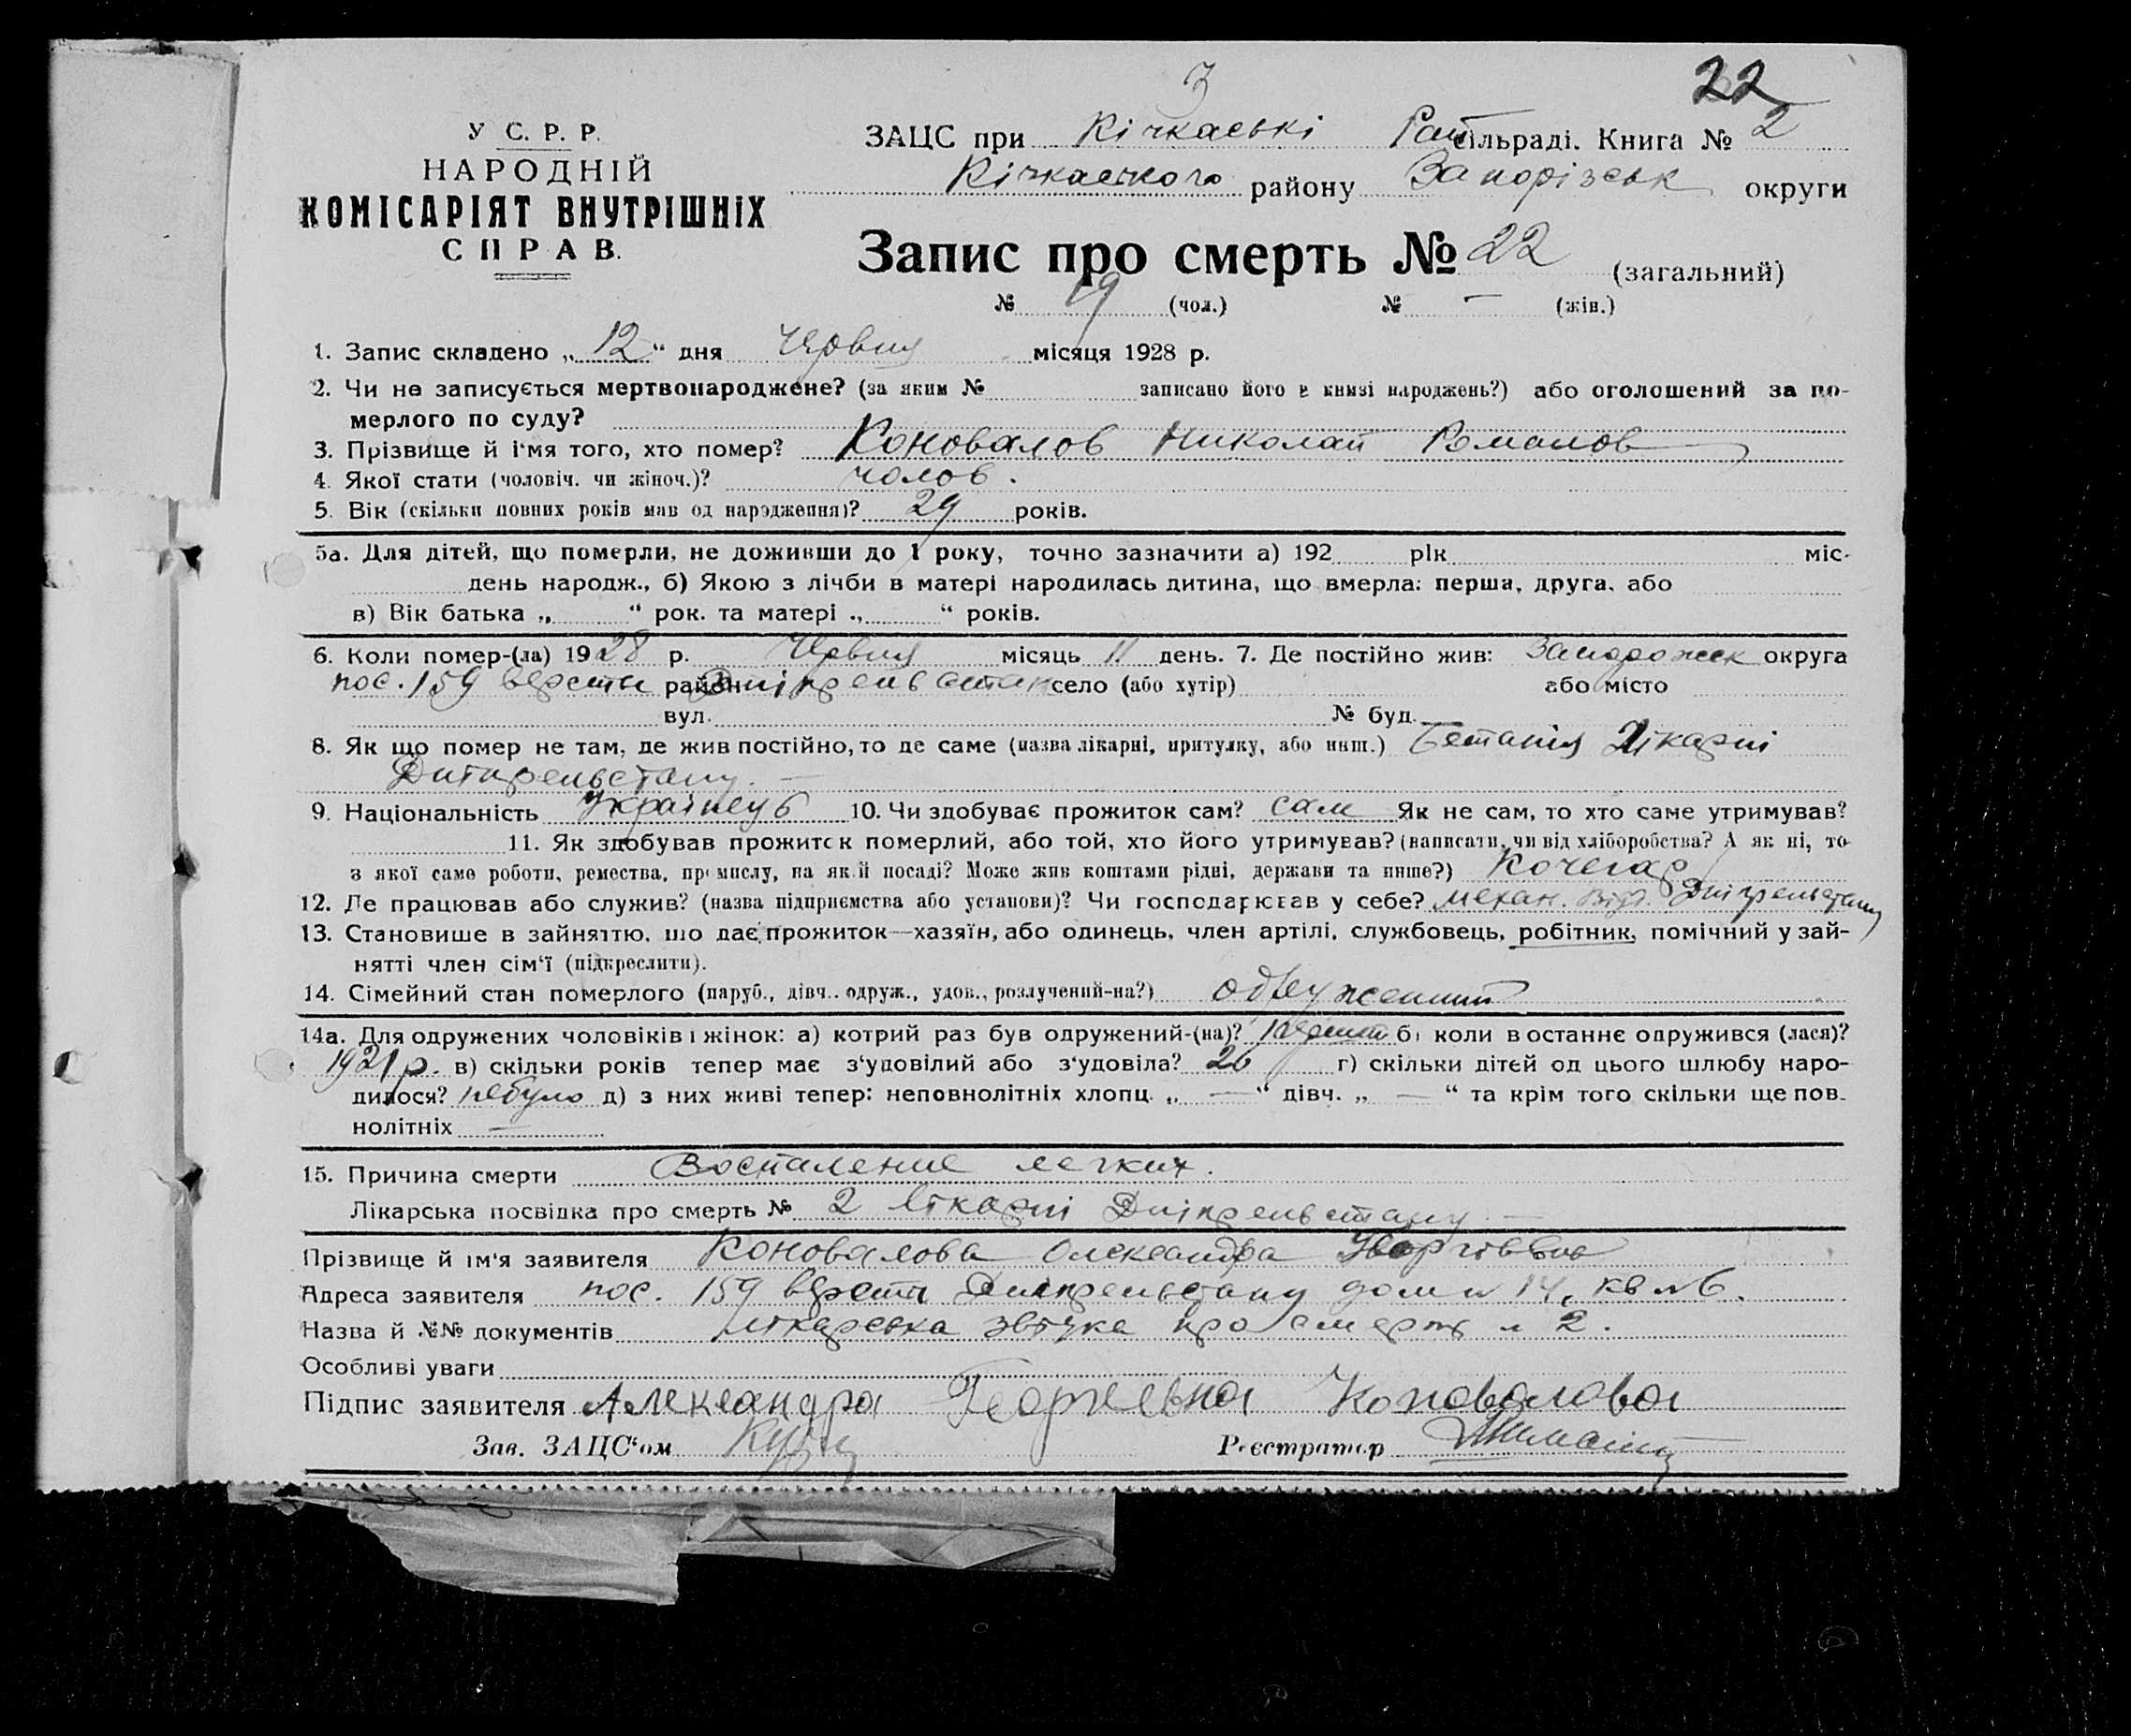 3
22
У С. Р. Р.
НАРОДНІЙ
КОМІСАРІЯТ ВНУТРІШНІХ
СПРАВ.
ЗАЦС при Кічкаські Рай сільраді. Книга № 2
Кічкаського району Запорізськ округи
Запис про смерть № 22 (загальний)
№ 19 (чол.) № — (жін.)
1. Запис складено „ 12 “ дня Червня місяця 1928 р.
2. Чи не записується мертвонароджене? (за яким № записано його в книзі народжень?) або оголошений за по-
мерлого по суду?
3. Прізвище й ім'я того, хто помер? Коновалов Николай Романов
4. Якої стати (чоловіч. чи жіноч.)? чолов.
5. Вік (скільки повних років мав од народження)? 29 років.
5а. Для дітей, що померли, не доживши до 1 року, точно зазначити а) 192 рік міс-
день народж., б) Якою з лічби в матері народилась дитина, що вмерла: перша, друга, або
в) Вік батька „ “ рок. та матері „ “ років.
6. Коли помер-(ла) 1928 р. Червня місяць 11 день. 7. Де постійно жив: Запорожск округа
пос. 159 версти район Дніпрельстан село (або хутір) або місто
вул. № буд.
8. Як що помер не там, де жив постійно, то де саме (назва лікарні, притулку, або инш.) Лікарні
Дніпрельстану. —
9. Національність Українець 10. Чи здобуває прожиток сам? сам Як не сам, то хто саме утримував?
11. Як здобував прожиток померлий, або той, хто його утримував? (написати, чи від хліборобства? А як ні, то
з якої саме роботи, ремества, промислу, на якій посаді? Може жив коштами рідні, держави та инше?) Кочегар
12. Де працював або служив? (назва підприємства або установи)? Чи господарював у себе? механ. відд. Дніпрельстану
13. Становище в зайняттю, що дає прожиток—хазяїн, або одинець, член артілі, службовець, робітник, помічний у зай-
нятті член сім'ї (підкреслити).
14. Сімейний стан померлого (паруб., дівч.. одруж., удов., розлучений-на?) одружений
14а. Для одружених чоловіків і жінок: а) котрий раз був одружений-(на)? перший б) коли в останнє одружився (лася)?
1921 р. в) скільки років тепер має з'удовілий або з'удовіла? 26 г) скільки дітей од цього шлюбу наро-
дилося? небуло д) з них живі тепер: неповнолітніх хлопц. „ — “ дівч. „ — “ та крім того скільки ще пов-
нолітніх —
15. Причина смерти Воспаление легких.
Лікарська посвідка про смерть № 2 Лікарні Дніпрельстану —
Прізвище й ім'я заявителя Коновалова Олександра
Адреса заявителя пос. 159 версти Дніпрельстану дом № 14, кв № 6.
Назва й №№ документів лікарська звістка про смерть № 2.
Особливі уваги
Підпис заявителя Александра Георгевна Коновалова
Зав. ЗАЦС'ом Реєстратор